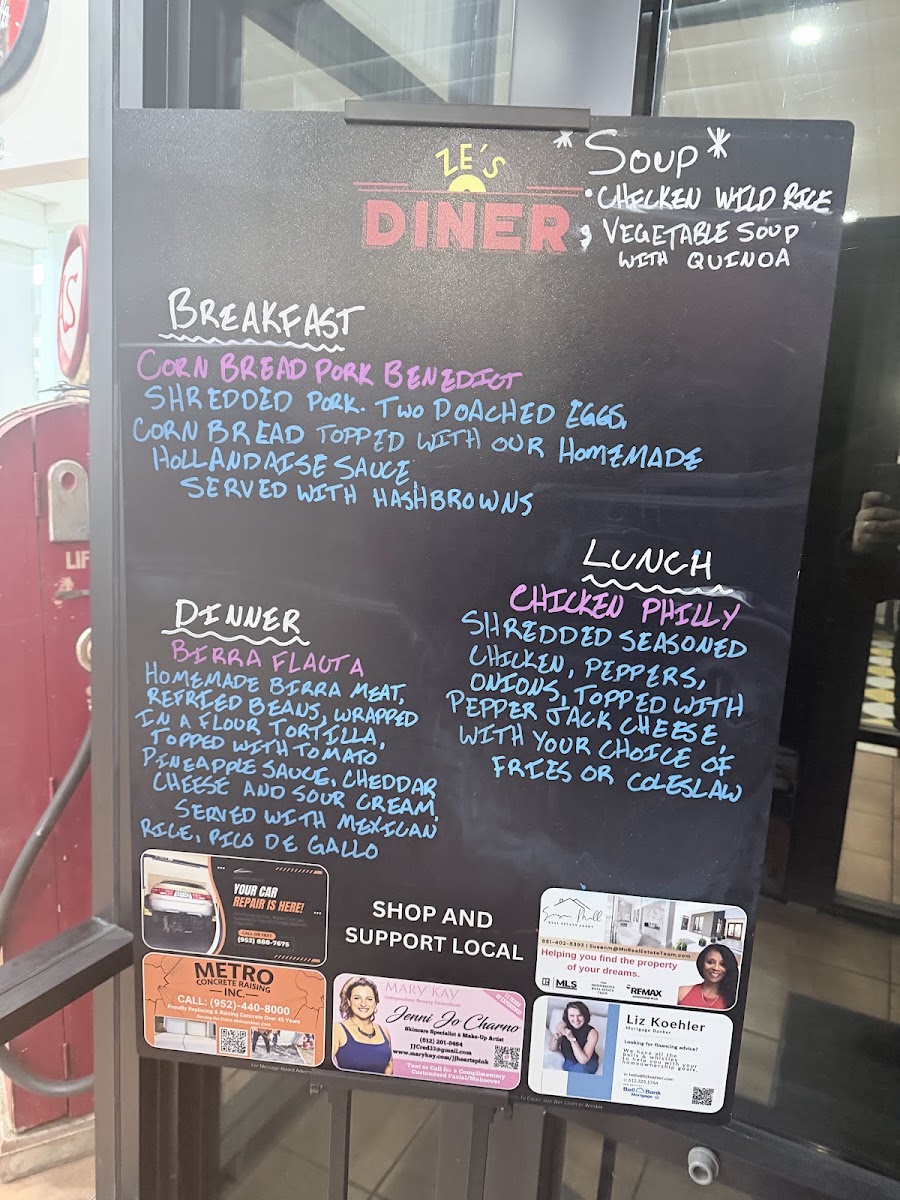 ZE'S
DINER
*SOUP*
• CHICKEN WILD RICE
VEGETABLE SOUP
WITH QUINOA
BREAKFAST
CORN BREAD PORK BENEDICT
SHREDDED PORK. TWO POACHED EGGS,
CORN BREAD TOPPED WITH OUR HOMEMADE
HOLLANDAISE SAUCE,
SERVED WITH HASHBROWNS
LUNCH
CHICKEN PHILLY
SHREDDED SEASONED
CHICKEN, PEPPERS,
ONIONS, TOPPED WITH
PEPPER JACK CHEESE,
WITH YOUR CHOICE OF
FRIES OR COLESLAW
DINNER
BIRRA FLAUTA
HOMEMADE BIRRA MEAT,
REFRIED BEANS, WRAPPED
IN A FLOUR TORTILLA,
TOPPED WITH TOMATO
PINEAPPLE SAUCE, CHEDDAR
CHEESE AND SOUR CREAM.
SERVED WITH MEXICAN
RICE, PICO DE GALLO
YOUR CAR
REPAIR IS HERE!
CALL OR TEXT
(952) 888-7675
METRO
CONCRETE RAISING
INC.
CALL: (952)-440-8000
Proudly Replacing & Raising Concrete Over 45 Years
Serving the Entire Metropolitan Area
SHOP AND
SUPPORT LOCAL
MARY KAY
Independent Beauty Consultant
Jenni Jo Charno
Skincare Specialist & Make-Up Artist
(612) 201-8464
www.marykay.com/jjheartspink
Text or Call for a Complimentary
Customized Facial/Makeover
REAL ESTATE AGENT
Helping you find the property
of your dreams.
MLS
RE/MAX
Liz Koehler
Mortgage Banker
Looking for financing advice?
We have all the
homeownership goals.
Bell Bank
Mortgage
LIF
S